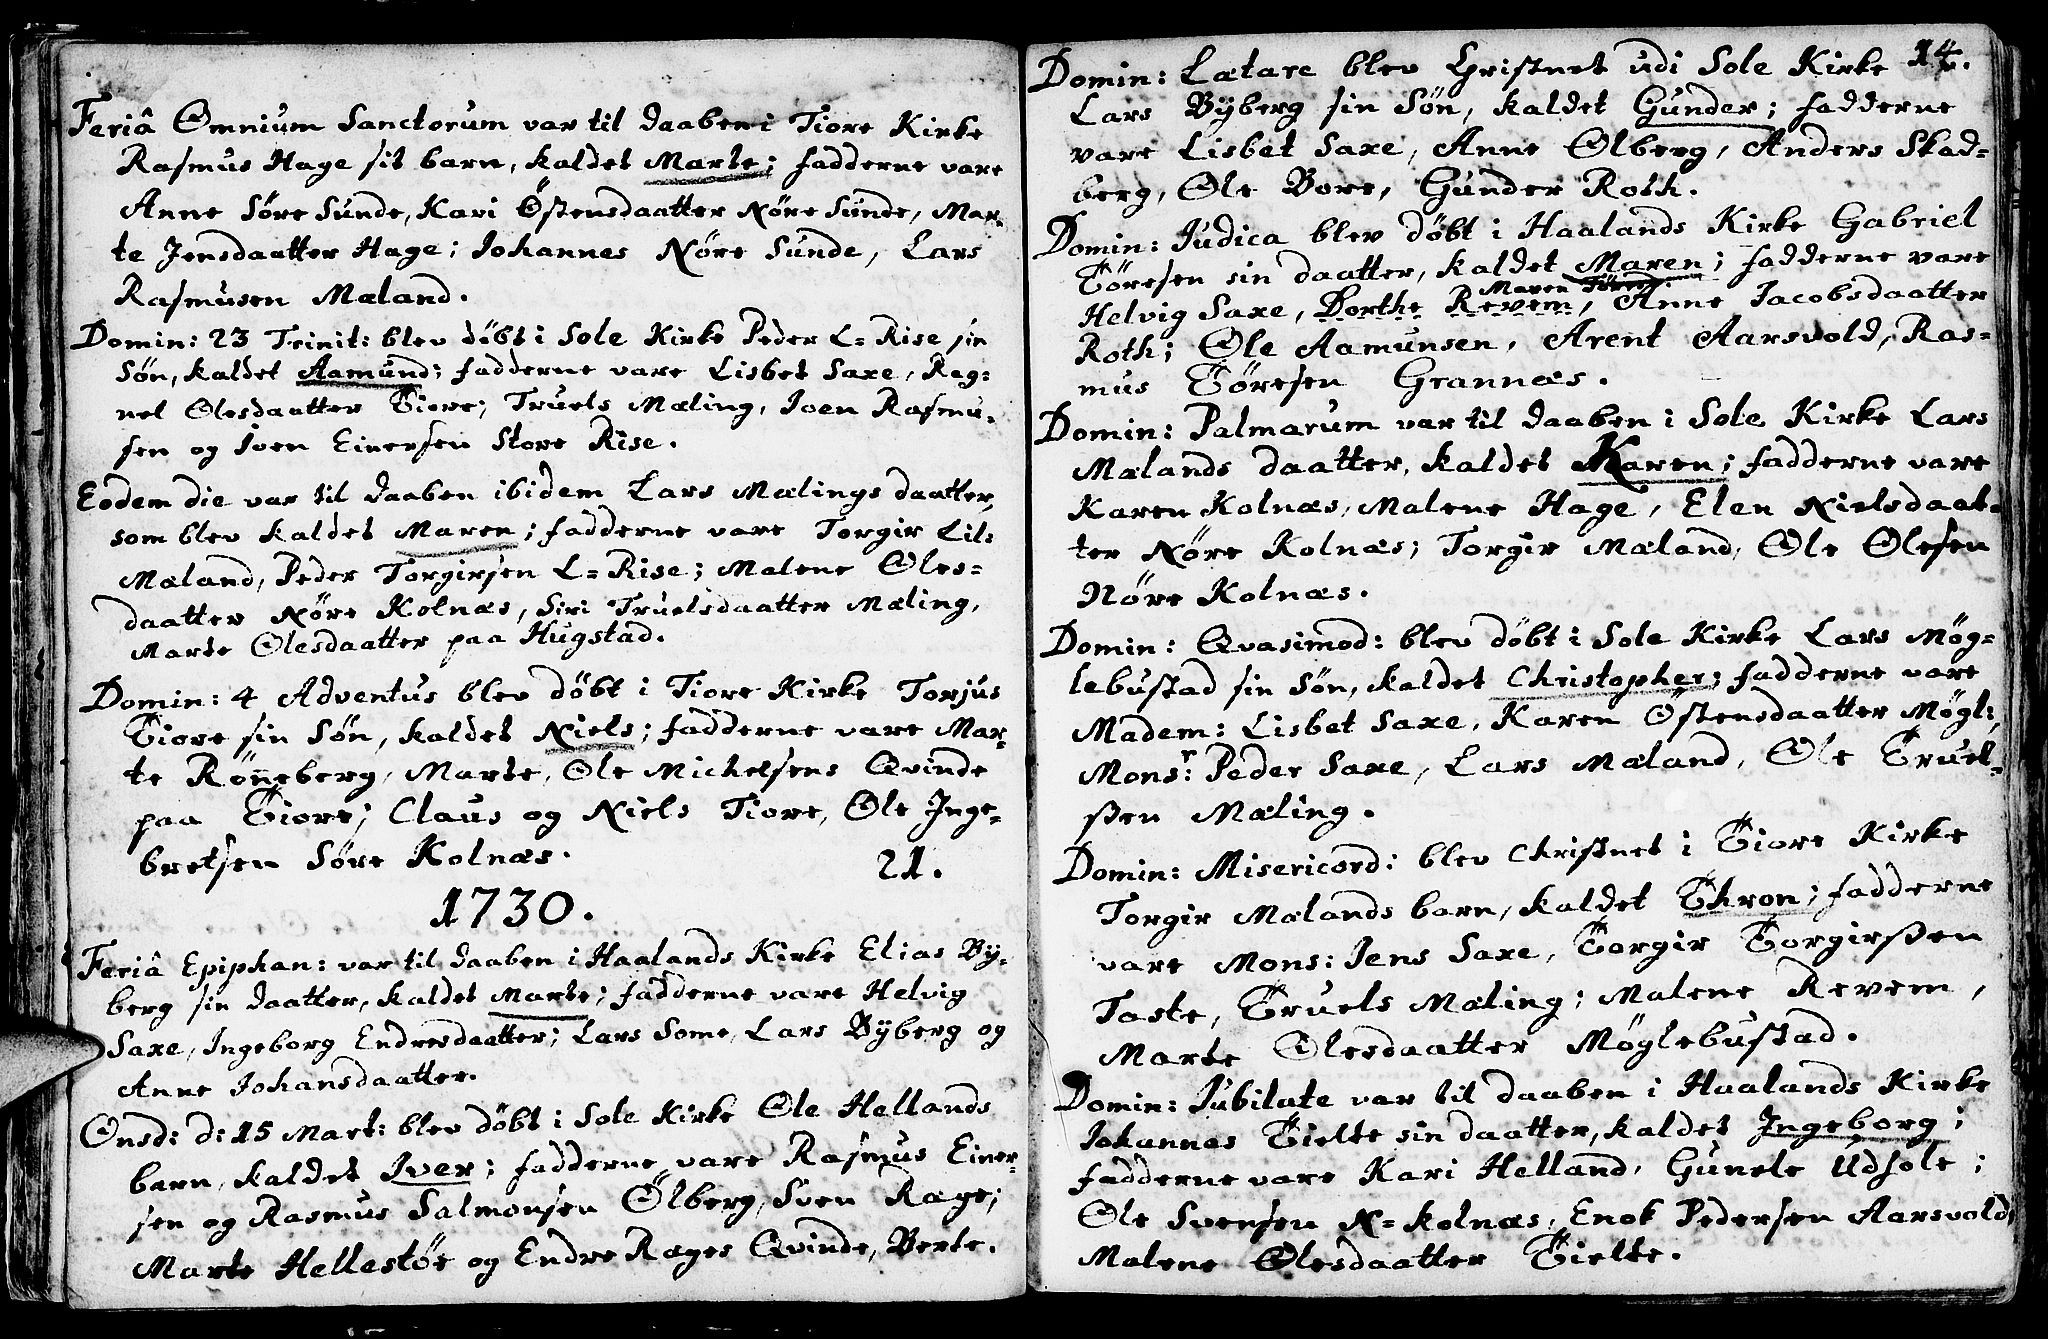 Feriâ Omnium Sanctorum var til daaben i Tiore Kirke
Rasmus Hage sit barn, kaldet Marte; fadderne vare
Anne Søre Sunde, Kari Østensdaatter Nøre Sunde, Mar-
te Jensdaatter Hage; Johannes Nøre Sunde, Lars
Rasmusen Mæland.
Domin: 23 Trinit: blev døbt i Sole Kirke Peder L= Rise sin
Søn, kaldet Aamund; fadderne vare Lisbet Saxe, Rag=
nel Olesdaatter Tiore; Truels Mæling, Joen Rasmu-
sen og Iven Einersen Store Rise.
Eodem die var til daaben ibidem Lars Mælings daatter,
som blev kaldet Maren; fadderne vare Torgir Lil:
Mæland, Peder Torgirsen L= Rise; Malene Oles=
daatter Nøre Kolnæs, Siri Truelsdaatter Mæling,
Marte Olesdaatter paa Hugstad.
Domin: 4 Adventus blev døbt i Tiore Kirke Torjus
Tiore sin Søn, kaldet Niels; fadderne vare Mar-
te Røneberg, Marte, Ole Michelsens Qvinde
paa Tiore; Claus og Niels Tiore, Ole Inge-
bretsen Søre Kolnæs.
21.
1730.
Feriâ Epiphan: var til daaben i Haalands Kirke Elias By-
berg sin daatter, kaldet Marte; fadderne vare Helvig
Saxe, Ingeborg Endresdaatter; Lars Some, Lars Bÿberg og
Anne Johansdaatter.
Onsd: d: 15 Mart: blev døbt i Sole Kirke Ole Hellands
barn, kaldet Iver; fadderne vare Rasmus Einer-
sen og Rasmus Salmonsen Ølberg, Sven Rage;
Marte Hellestøe og Endre Rages Qvinde, Berte.
14.
Domin: Lætare blev Christnet udi Sole Kirke
Lars Bÿberg sin Søn, kaldet Gunder; fadderne
vare Lisbet Saxe, Anne Ølberg, Anders Skad=
berg, Ole Bore, Gunder Roth.
Domin: Judica blev døbt i Haalands Kirke Gabriel
Töresen sin daatter, kaldet Maren; fadderne vare
Helvig Saxe, Dorthe Revem, Anne Jacobsdaatter
Roth; Ole Aamunsen, Arent Aarsvold, Ras=
mus Töresen Grannæs.
Domin: Palmarum var til daaben i Sole Kirke Lars
Mælands daatter, kaldet Karen; fadderne vare
Karen Kolnæs, Malene Hage, Elen Nielsdaat-
ter Nøre Kolnæs; Torgir Mæland, Ole Olesen
Nöre Kolnæs.
Domin: Qvasimod: blev döbt i Sole Kirke Lars Møg=
lebustad sin Søn, kaldet Christopher; fadderne vare
Madem: Lisbet Saxe, Karen Østensdaatter Møgl:,
Monsr: Peder Saxe, Lars Mæland, Ole Truel-
ssen Mæling.
Domin: Misericord: blev Christnet i Tiore Kirke
Torgir Mælands barn, kaldet Thron; fadderne
vare Mons: Jens Saxe, Torgir Torgirssen
Taste, Truels Mæling; Malene Revem,
Marte Olesdaatter Møglebustad.
Domin: Jubilate var til daaben i Haalands Kirke
Johannas Tielte sin daatter, kaldet Ingeborg;
fadderne vare Kari Helland, Gunele Udsole;
Ole Svensen N= Kolnæs, Enok Pedersen Aarsvold,
Malene Olesdaatter Tielte.